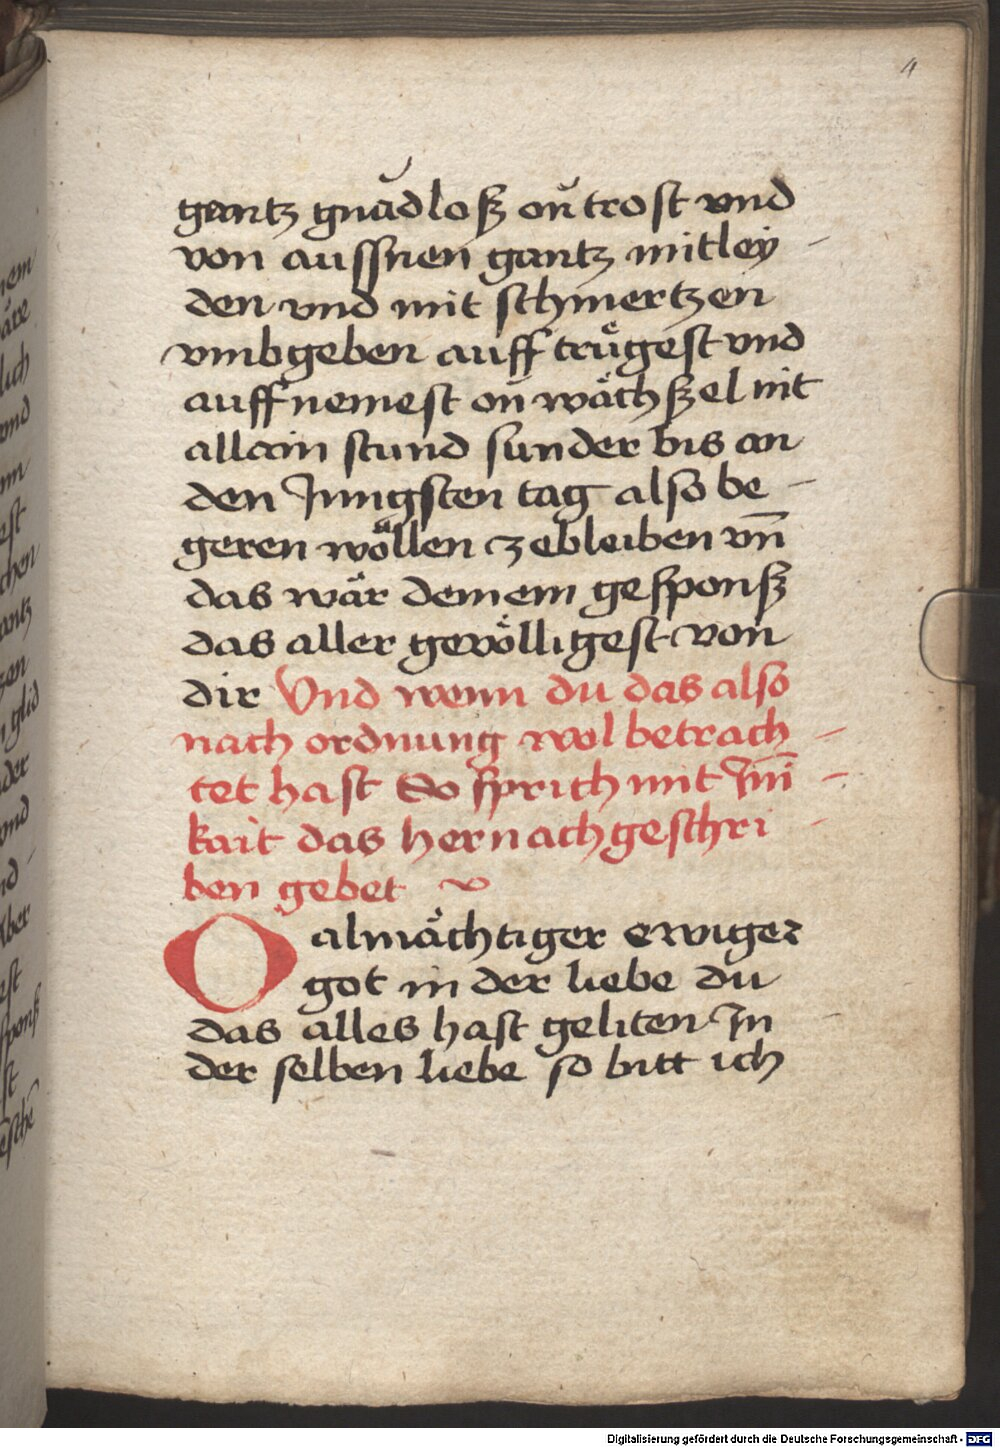 4
gantz gnaͮdloß oͮn trost vnd
von aussnen gantz mitley -
den vnd mit schmertzen
vmbgeben auff truͤgest vnd
auffnemest on wächßel nit
allain stund sunder bis an
den Jungsten tag also be -
geren wöllen zebleiben vn̄
das wär deinem gesponß
das aller gevölligest von
dir Vnd wenn du das also
nach ordnung wol betrach -
tet hast So sprich mit Jn̄i -
kait das hernach geschri -
ben gebet
O almächtiger ewiger
got in der liebe du
das alles hast geliten Jn -
der selben liebe so bitt ich
Digitalisierung gefördert durch die Deutsche Forschungsgemeinschaft - DFG